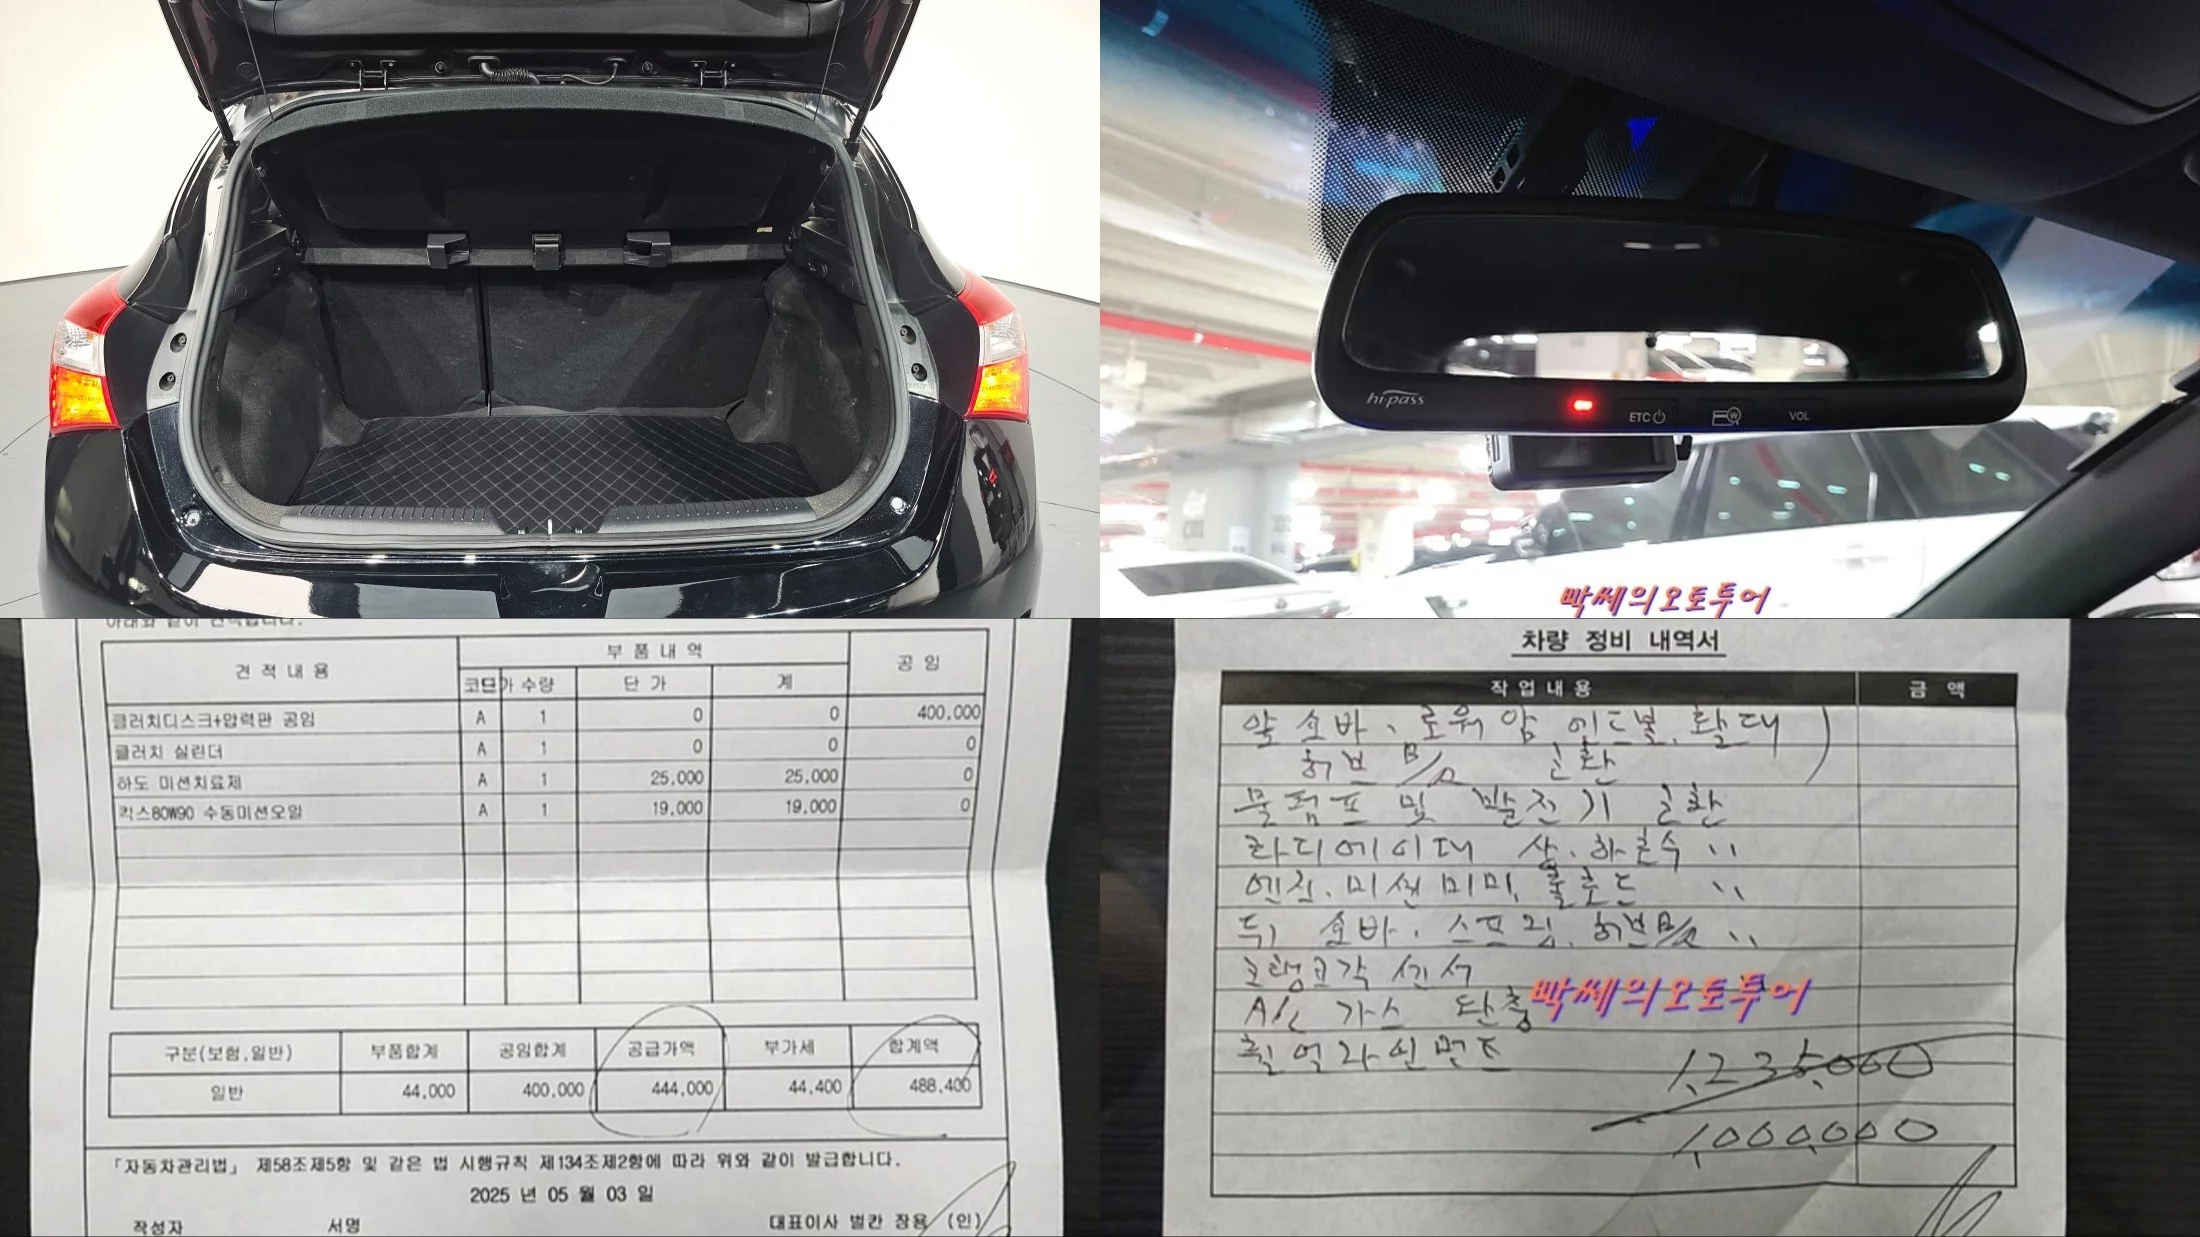 hi-pass
ETC
VOL
빡쎄의오토투어
아래와 같이 견적합니다.
견적내용 부품내역 공임
코드 수량 단가 계
클러치디스크+압력판 공임 A 1 0 0 400,000
클러치 실린더 A 1 0 0 0
하도 미션치료제 A 1 25,000 25,000 0
킥스80W90 수동미션오일 A 1 19,000 19,000 0
구분(보험,일반) 부품합계 공임합계 공급가액 부가세 합계액
일반 44,000 400,000 444,000 44,400 488,400
「자동차관리법」 제58조제5항 및 같은 법 시행규칙 제134조제2항에 따라 위와 같이 발급합니다.
2025 년 05 월 03 일
작성자 서명 대표이사 벌칸 장용 (인)
차량 정비 내역서
작업내용 금액
앞 쇼바, 로워암, 앤드볼, 활대
허브 B/R 교환
물펌프 및 발전기 교환
라디에이터 상.하호수 〃
엔진.미션 미미, 롤로드 〃
뒤 쇼바, 스프링, 허브 B/R 〃
크랭크각 센서
A/C 가스 단충
빡쎄의오토투어
휠얼라인먼트
1,235,000
1,000,000